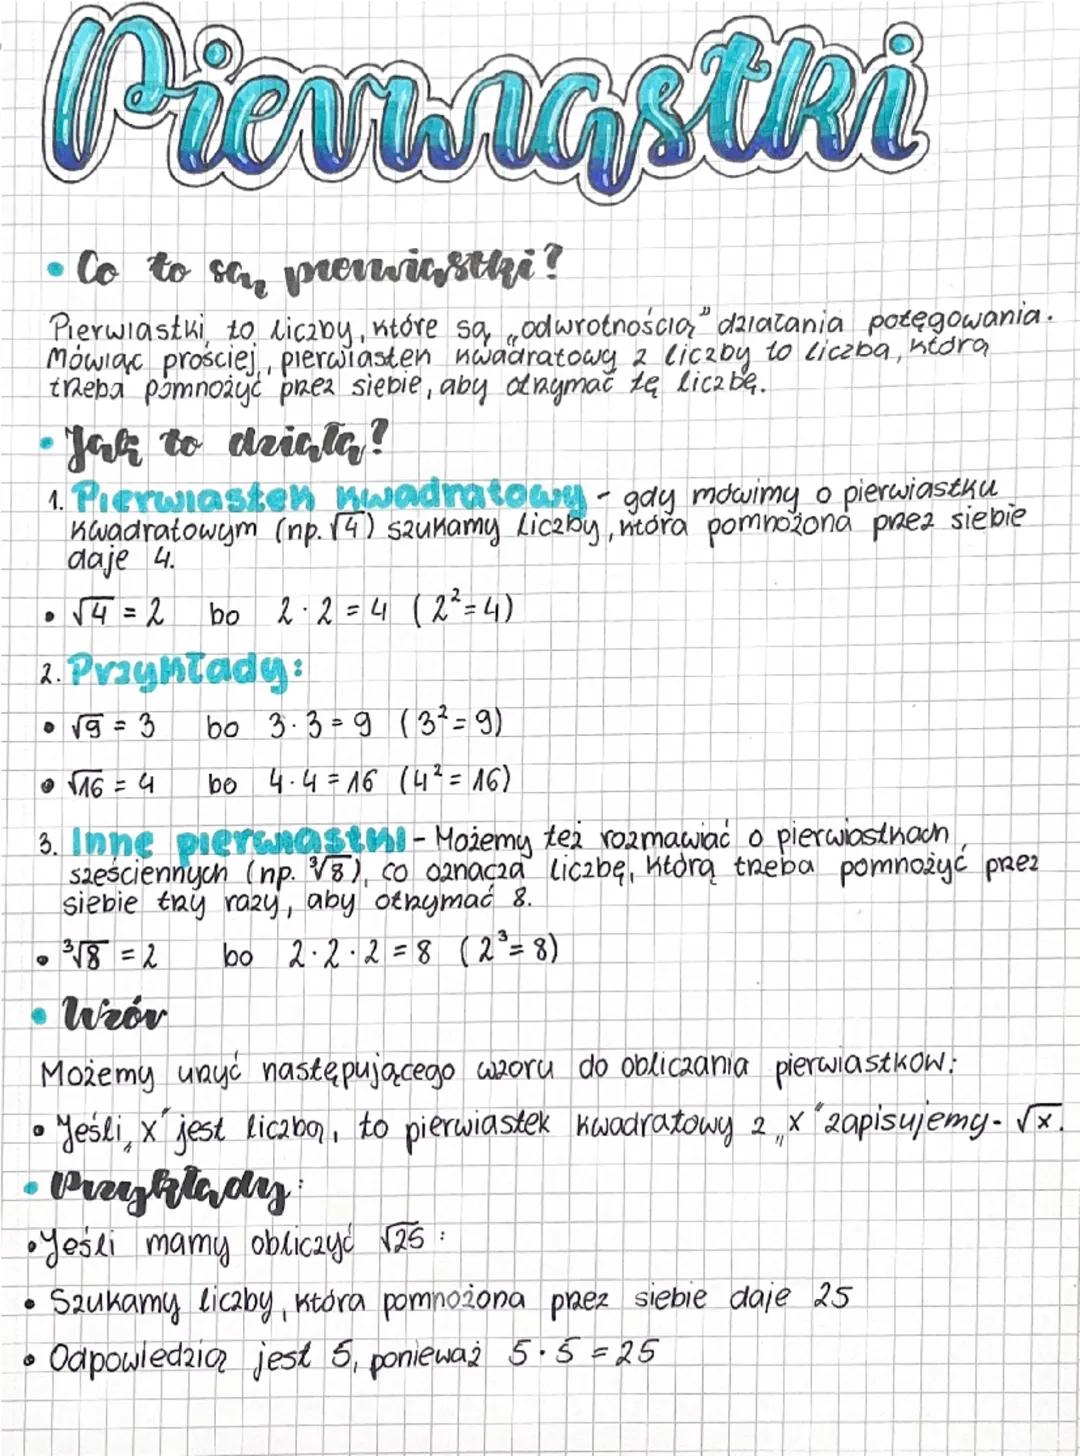 Pierwiastki
• Co to są pierwiastki?
Pierwiastki to liczby, które są „odwrotnością” działania potęgowania.
Mówiąc prościej, pierwiastek kwadratowy z liczby to liczba, którą
trzeba pomnożyć przez siebie, aby otrzymać tę liczbę.
• Jak to działa?
1. Pierwiastek kwadratowy - gdy mówimy o pierwiastku
kwadratowym (np. √4) szukamy liczby, która pomnożona przez siebie
daje 4.
• √4 = 2 bo 2·2 = 4 (2²=4)
2. Przykłady:
• √9 = 3 bo 3·3 = 9 (3²=9)
• √16 = 4 bo 4·4 = 16 (4²=16)
3. Inne pierwiastki - Możemy też rozmawiać o pierwiastkach
sześciennych (np. ³√8), co oznacza liczbę, którą trzeba pomnożyć przez
siebie trzy razy, aby otrzymać 8.
• ³√8 = 2 bo 2·2·2 = 8 (2³=8)
• Wzór
Możemy użyć następującego wzoru do obliczania pierwiastków:
• Jeśli „x” jest liczbą, to pierwiastek kwadratowy z „x” zapisujemy - √x.
• Przykłady:
• Jeśli mamy obliczyć √25 :
• Szukamy liczby, która pomnożona przez siebie daje 25
• Odpowiedzią jest 5, ponieważ 5·5 = 25